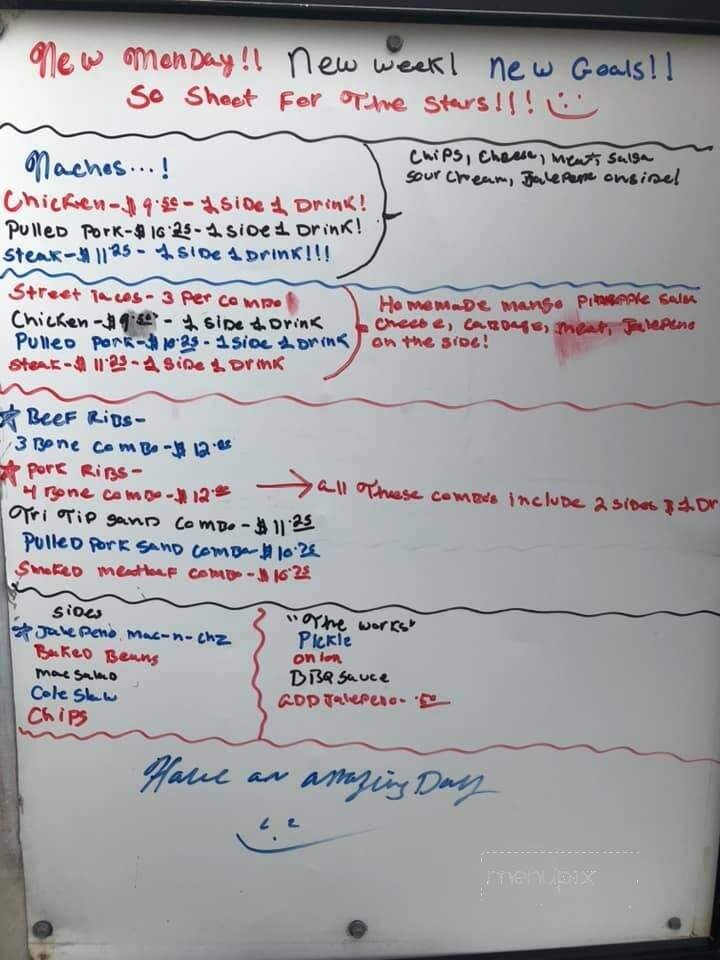 New Monday!! New week! New Goals!!
So Shoot For The Stars!!!
Nachos...!
Chips, Cheese, meat, Salsa
Sour Cream, Jalepeno on side!
Chicken-$9.50- 1 Side 1 Drink!
Pulled Pork-$10.25-1 Side 1 Drink!
Steak-$11.25- 1 Side 1 Drink!!!
Street Tacos- 3 Per Combo
Homemade mango Pineapple Salsa
Chicken-$9.50 - 1 Side 1 Drink
Cheese, Cabbage, meat, Jalepeno
Pulled Pork-$10.25-1 Side 1 Drink
on the side!
Steak-$11.25-1 Side 1 Drink
Beef Ribs-
3 Bone Combo-$12.00
Pork Ribs-
4 Bone Combo-$12.00
all These combos include 2 sides & 1 Dr
Tri Tip Sand Combo-$11.25
Pulled Pork Sand Combo-$10.25
Smoked meatloaf Combo-$10.25
Sides
Jalepeno Mac-n-chz
Baked Beans
mac salad
Cole Slaw
Chips
"The works"
Pickle
onion
BBQ Sauce
ADD Jalepeno-.50
Have an amazing Day
menupix